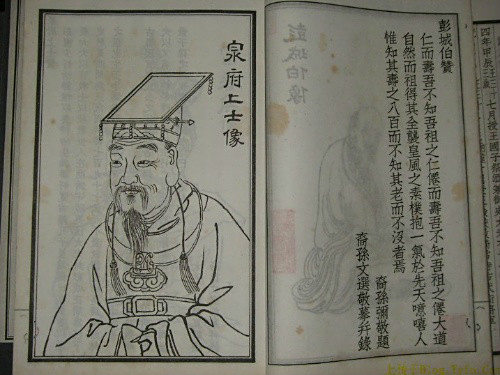 彭城伯贊
仁而壽吾不知吾祖之仁僊而壽吾不知吾祖之僊大道
自然而祖得其全襲皇風之素樸抱一氣於先天噫嘻人
惟知其壽之八百而不知其老而不沒者焉
裔孫彌敬題
裔孫文選敬摹幷錄
泉府上士像